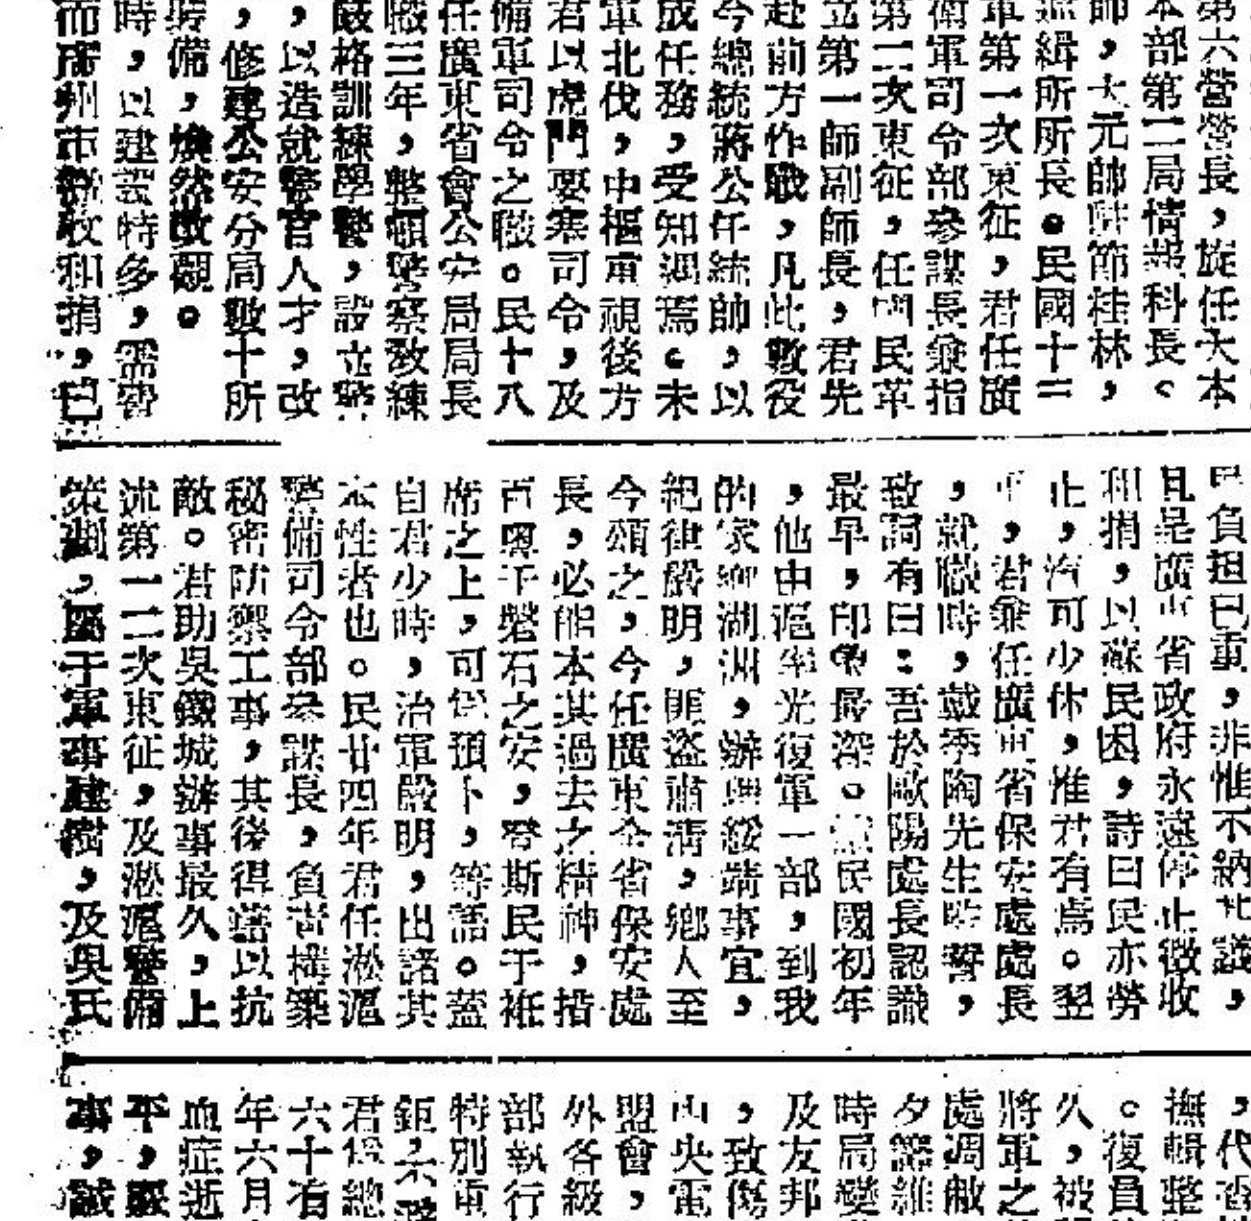 第六營營長,旋任大本
本部第二局情報科長。
師,大元帥駐節桂林,
緝所所長。民國十三
軍第一次東征,君任廣
衛軍司令部參謀長兼指
第二次東征,任國民革
立第一師副師長,君先
赴前方作戰,凡此數役
今總統蔣公任統帥,以
成任務,受知遇焉。未
軍北伐,中樞重視後方
君以虎門要塞司令,及
備軍司令之職。民十八
任廣東省會公安局局長
職三年,整頓警察教練
嚴格訓練學警,設立警
,以造就警官人才,改
,修建公安分局數十所
裝備,煥然改觀。
時,以建設特多,需費
而廣州市警收和捐,已
民負担已重,非惟不納
且是廣東省政府永遠停止徵收
和捐,以蘇民困,詩曰民亦勞
止,汔可少休,惟君有焉。翌
年,君兼任廣東省保安處處長
,就職時,戴季陶先生監誓,
致詞有曰:吾於歐陽處長認識
最早,印象最深。民國初年
,他由滬率光復軍一部,到我
的家鄉湖洲,辦理綏靖事宜,
紀律嚴明,匪盜肅清,鄉人至
今頌之,今任廣東全省保安處
長,必能本其過去之精神,措
百粵于磐石之安,登斯民于袵
席之上,可為預卜,等語。蓋
自君少時,治軍嚴明,出諸其
本性者也。民廿四年君任淞滬
警備司令部參謀長,負責構築
秘密防禦工事,其後得藉以抗
敵。君助吳鐵城辦事最久,上
述第一二次東征,及淞滬警備
策劃,屬于軍事建樹,及吳氏
,代
撫輯整
。復員
久,被
將軍之
處調
夕
時局變
及友邦
,致傷
中央電
盟會,
外各級
部執行
特別電
鉅,不
君總
六十有
年六月
血症逝
平,
事,誠